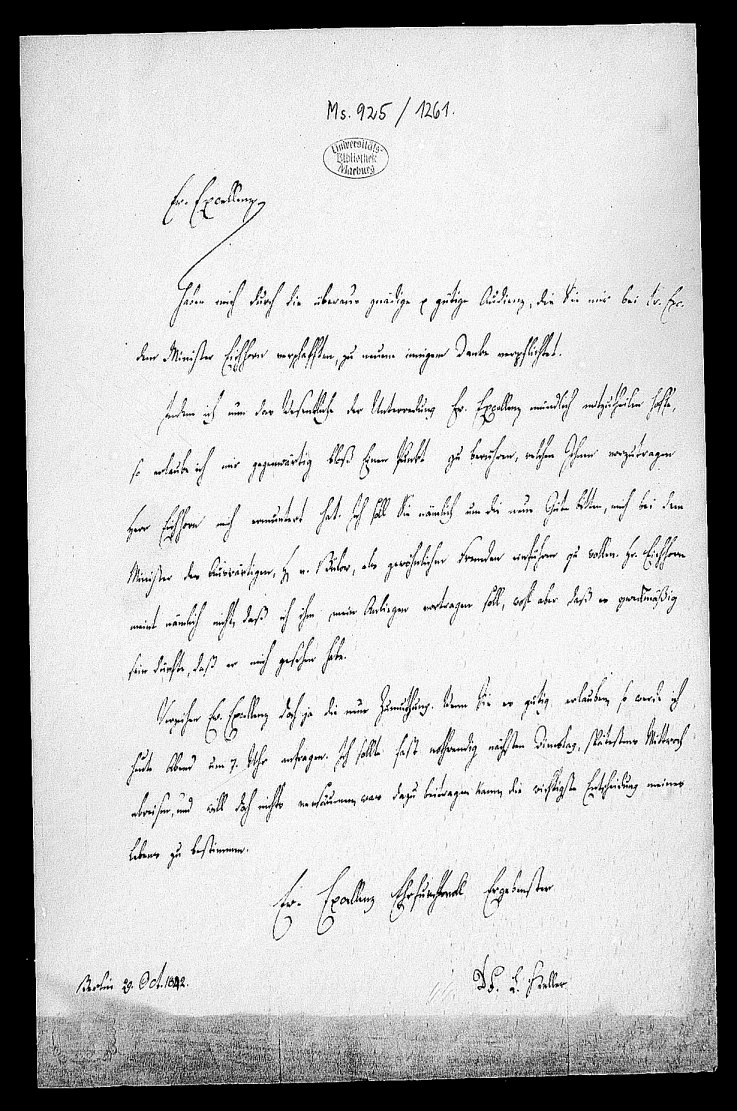 Ms. 925 / 1261.
Universitäts-
Bibliothek
Marburg
Ew. Excellenz
haben mich durch die überaus gnädige u. gütige Audienz, die Sie mir bei Sr. Exc.
dem Minister Eichhorn verschafften, zu neuem innigem Danke verpflichtet.
Indem ich nun das Wesentliche der Unterredung Ew. Excellenz mündlich mitzutheilen hoffe,
so erlaube ich mir gegenwärtig bloß Einen Punkt zu berühren, welchen Ihnen vorzutragen
Herr Eichhorn mich ermuntert hat. Ich soll Sie nämlich um die neue Güte bitten, mich bei dem
Minister des Auswärtigen, H. v. Bülow, als gewöhnlichen Fremden einführen zu wollen. Hr. Eichhorn
meint nämlich nicht, daß ich ihm mein Anliegen vortragen soll, wohl aber daß es zweckmäßig
sein dürfte, daß er mich gesehen habe.
Verzeihen Ew. Excellenz doch ja die neue Zumuthung. Wenn Sie es gütig erlauben, so werde ich
heute Abend um 7 Uhr anfragen. Ich sollte fast nothwendig nächsten Dinstag, spätestens Mittwoch
abreisen, und will doch nichts versäumen, was dazu beitragen kann, die wichtigste Entscheidung meines
Lebens zu bestimmen.
Ew. Excellenz Ehrfurchtsvoll Ergebenster
Berlin 29. Oct. 1842.
Dr. L. Keller